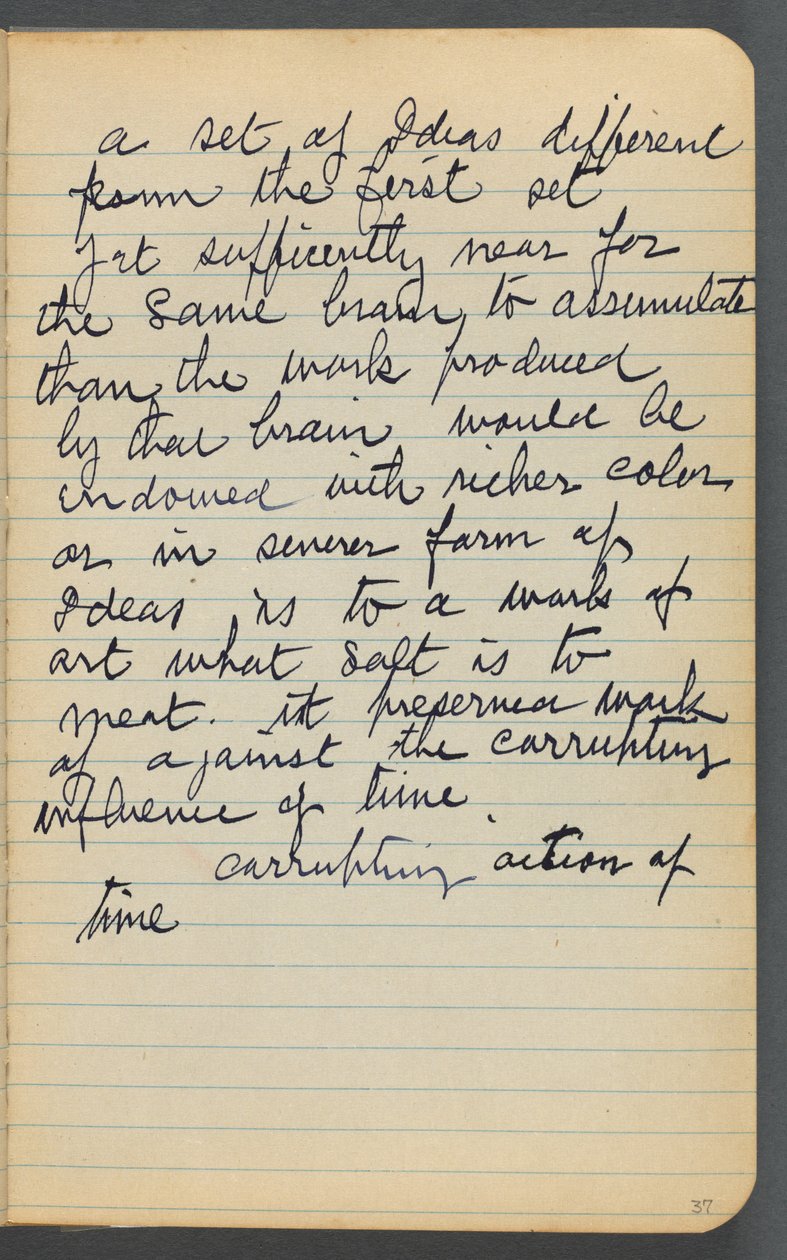 a set of Ideas different
from the first set
yet sufficently near for
the same brain, to assumulate
than the work produced
by that brain would be
endowed with richer color
or in severer form of
Ideas is to a work of
art what salt is to
meat. it preserved work
of against the corrupting
influence of time.
corrupting action of
time
37